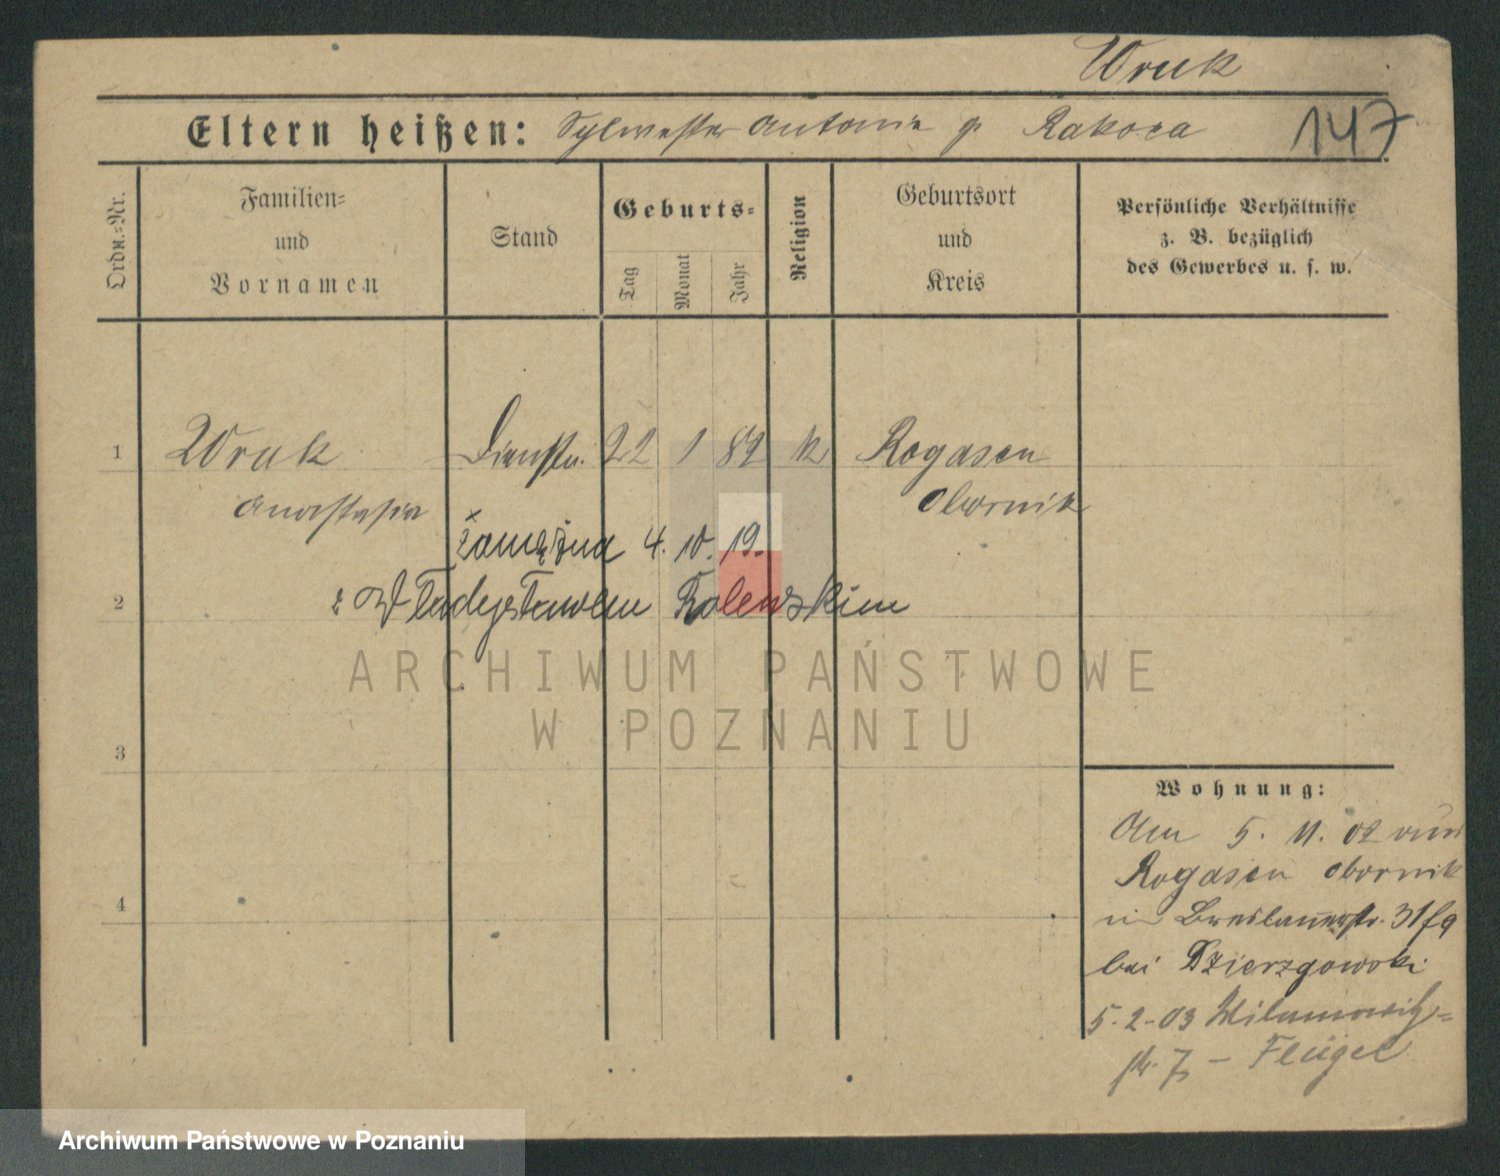 Wruk
Eltern heißen: Sylwester Antonie g. Rakoca
147
Ordn.-Nr.
Familien-
und
Vornamen
Stand
Geburts-
Tag
Monat
Jahr
Religion
Geburtsort
und
Kreis
Persönliche Verhältnisse
z. B. bezüglich
des Gewerbes u. s. w.
1 Wruk Dienstm. 22 1 82 k Rogasen
Anastasia Obornik
zamężna 4. 10. 19.
2 z Władysławem Rolewskim
ARCHIWUM PAŃSTWOWE
W POZNANIU
3
4
Wohnung:
Am 5. 11. 02 aus
Rogasen Obornik
in Breslauerstr. 31
bei Dzierzgowski
5.2-03 Wilamowitz-
str. 7 - Flügel
Archiwum Państwowe w Poznaniu